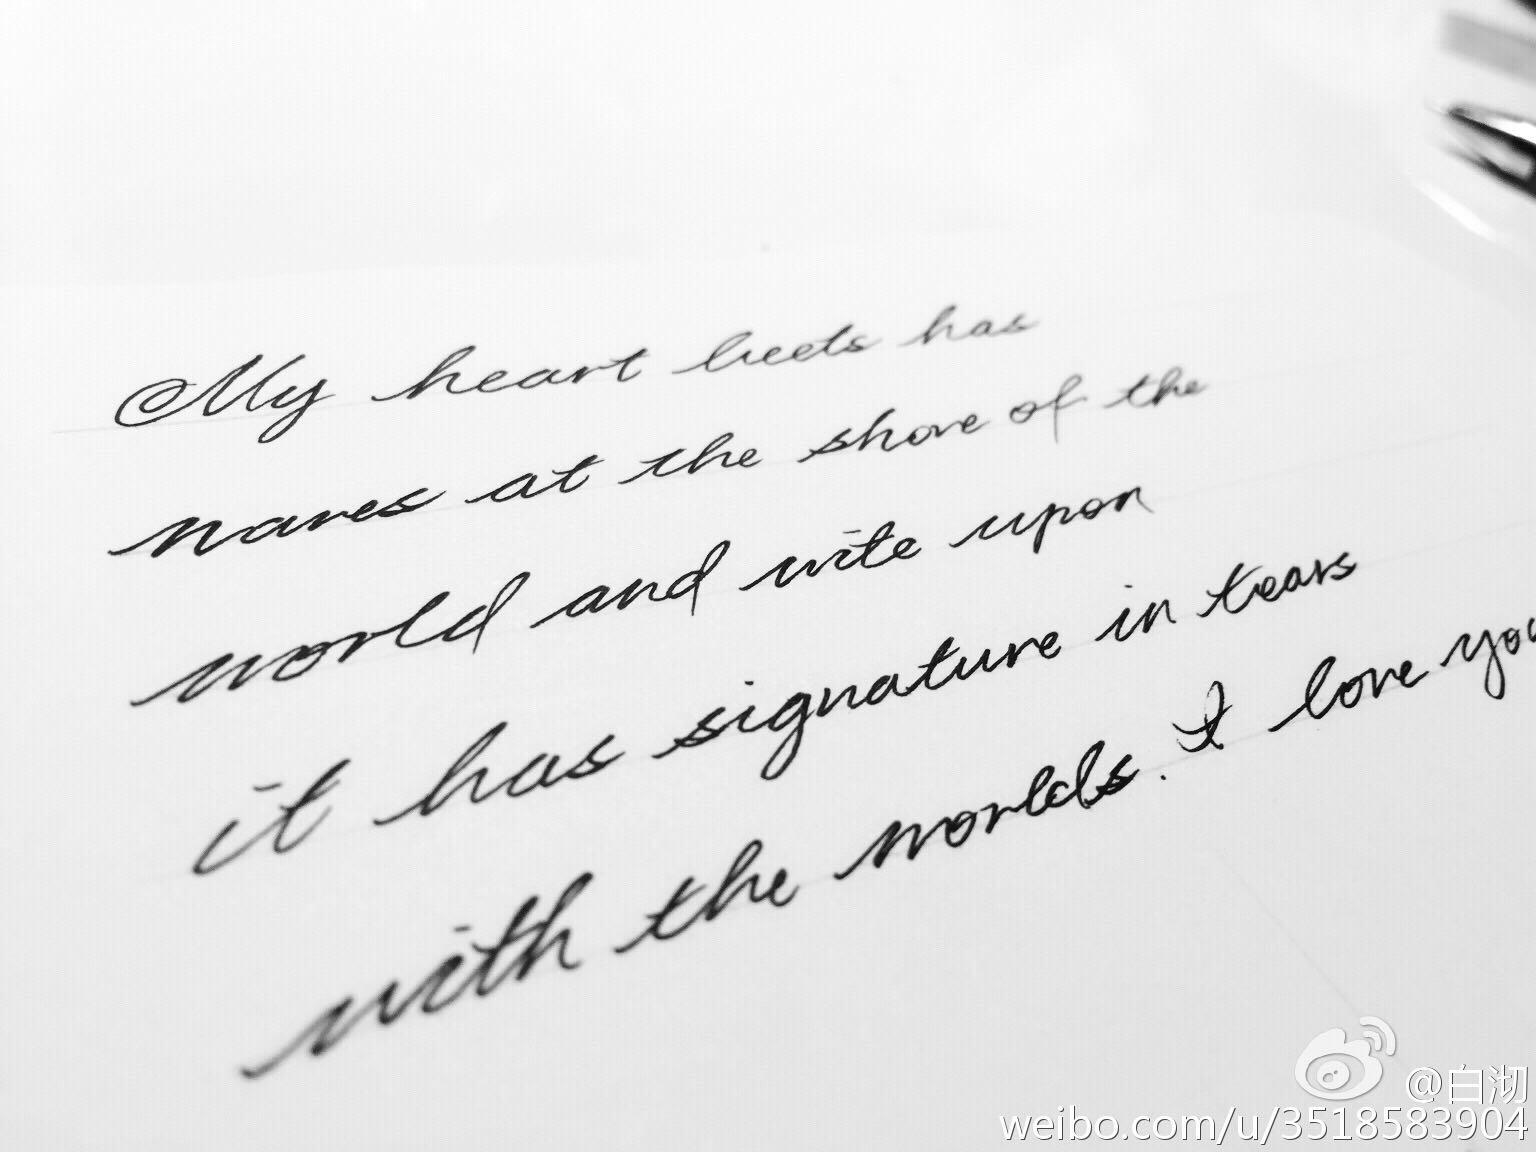 My heart beets has
waves at the shore of the
world and wite upon
it has signature in tears
with the words. I love you
@白沏
weibo.com/u/3518583904